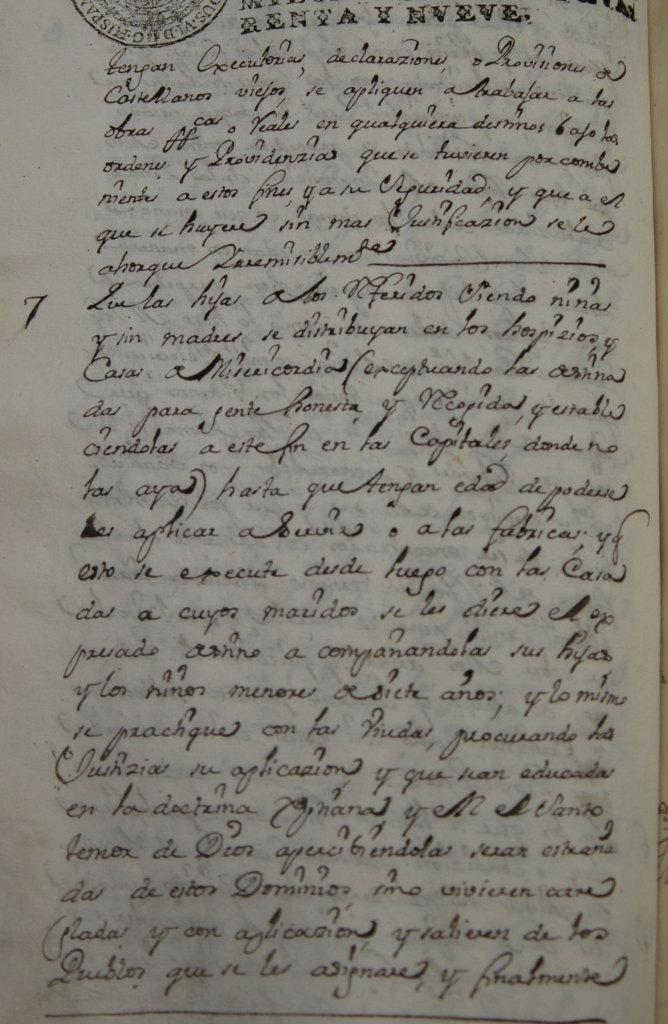 RENTA Y NVEVE.
tengan Executorias, declaraziones, o Provisiones de
Castellanos viejos, se apliquen a trabajar a las
obras ppcas o reales en qualquiera destinos bajo las
ordenes y Providenzias que se tuvieren por combe
nientes a estos fines, y a su Seguridad; y que a el
que se huyere sin mas Justificazion se le
ahorque Yrremisiblemte
7 Que las hijas de los Referidos siendo niñas
y sin madres se distribuyan en los hospizios y
Casas de Misericordia (exceptuando las destina
das para gente honesta, y Recogida, y estable
ciendolas a este fin en las Capitales, donde no
las aya) hasta que tengan edad de poderse
les aplicar a servir o a las fabricas; y q
esto se execute desde luego con las Casa
das a cuyos maridos se les diere el ex
presado destino acompañandolas sus hijas
y los niños menores de siete años; y lo mismo
se practique con las viudas, procurando las
Justizias su aplicazion, y que sean educadas
en la doctrina Xpiana, y en el Santo
temor de Dios apercibiendolas seran estraña
das de estos Dominios, sino vivieren arre
gladas y con aplicazion, y salieren de los
Pueblos que se les asignare, y finalmente